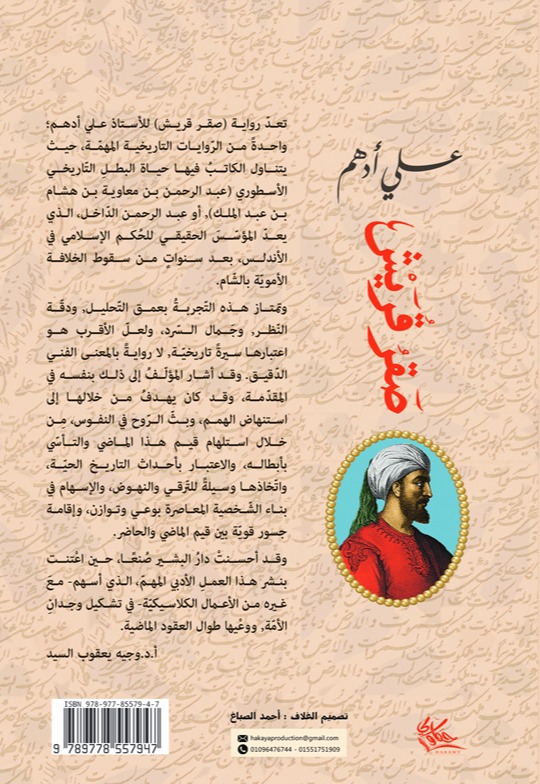 علي أدهم
صَقرُ قُرَيْش
تعدّ رواية (صقر قريش) للأستاذ علي أدهم؛
واحدةً من الرّوايات التاريخية المهمّة، حيث
يتناول الكاتبُ فيها حياة البطل التّاريخي
الأسطوري (عبد الرحمن بن معاوية بن هشام
بن عبد الملك)، أو عبد الرحمن الدّاخل، الذي
يعدّ المؤسّسَ الحقيقي للحُكم الإسلامي في
الأندلس، بعد سنواتٍ من سقوط الخلافة
الأمويّة بالشّام.
وتمتاز هذه التّجربةُ بعمق التّحليل, ودقّة
النّظر, وجَمال السّرد، ولعلّ الأقرب هو
اعتبارها سيرةً تاريخيّة, لا روايةً بالمعنى الفني
الدّقيق. وقد أشار المؤلّفُ إلى ذلك بنفسه في
المقدّمة، وقد كان يهدفُ من خلالها إلى
استنهاض الهمم، وبثّ الرّوح في النفوس، مِن
خلال استلهام قيم هذا الماضي والتأسّي
بأبطاله، والاعتبار بأحداث التاريخ الحيّة،
واتّخاذها وسيلةً للتّرقي والنهوض، والإسهام في
بناء الشّخصية المعاصرة بوعي وتوازن، وإقامة
جسور قويّة بين قيم الماضي والحاضر.
وقد أحسنتْ دارُ البشير صُنعًا، حين اعْتنت
بنشر هذا العملِ الأدبي المهمّ، الذي أسهم- معَ
غيره من الأعمال الكلاسيكيّة- في تشكيل وجدانِ
الأمّة, ووعْيها طوال العقود الماضية.
أ.د.وجيه يعقوب السيد
ISBN 978-977-85579-4-7
9 789778 557947
تصميم الغلاف : أحمد الصباغ
hakayaproduction@gmail.com
01096476744 - 01551751909
حكاوي
HAKAWY